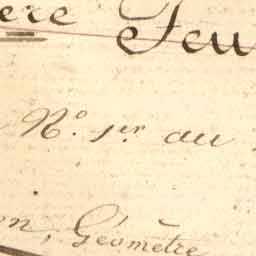 ère Feu
N.° 1er au
on, Géomètre